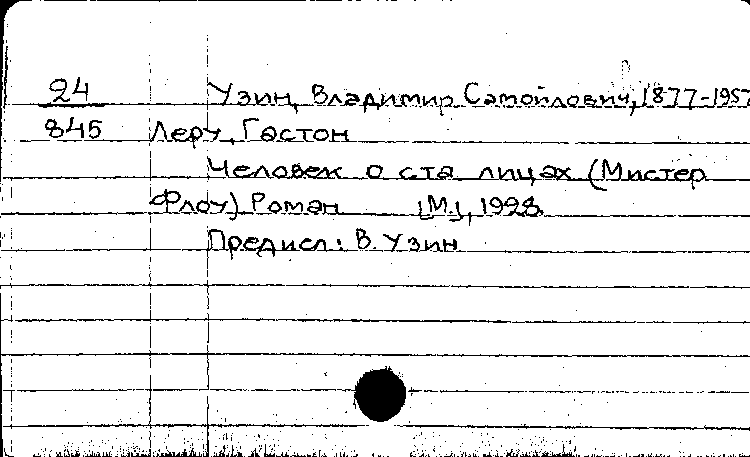 24 Узин, Владимир Самойлович, 1877-1957
845 Леру, Гастон
Человек о ста лицах (Мистер
Флоу) Роман [М.], 1928
Предисл.: В. Узин